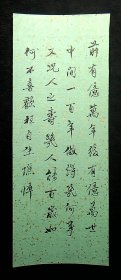 前有億萬年後有億萬世
中間一百年做得幾何事
又況人之壽幾人能百歲如
何不喜歡強自生憔悴